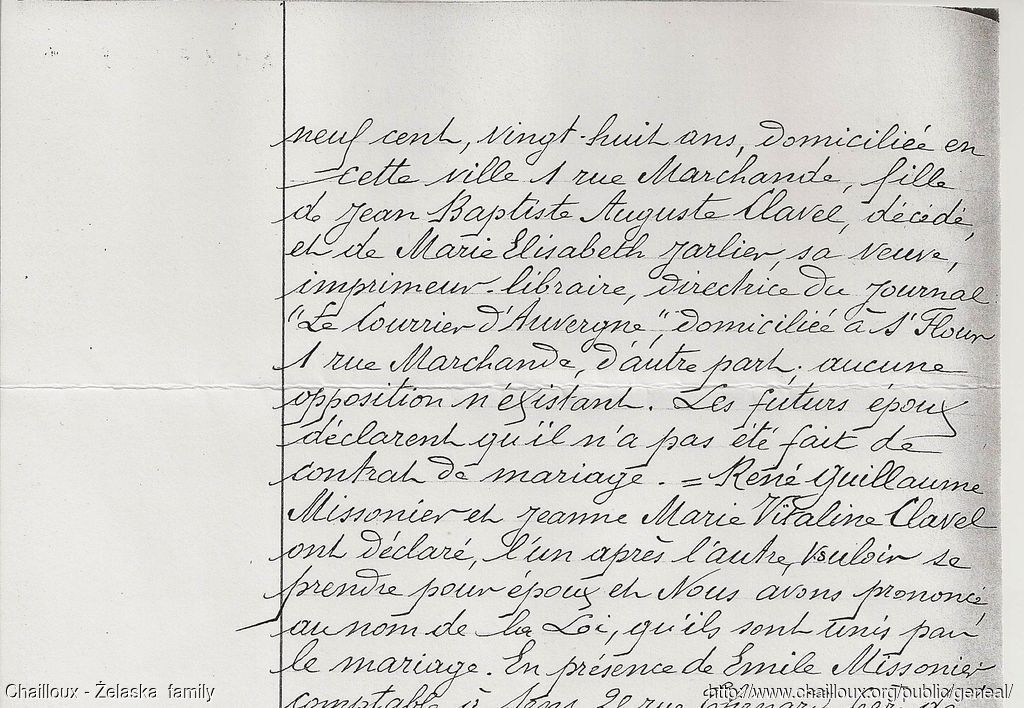 neuf cent, vingt-huit ans, domiciliée en
=cette ville 1 rue Marchande, fille
de Jean Baptiste Auguste Clavel, décédé,
et de Marie Elisabeth Jarlier, sa veuve,
imprimeur-libraire, directrice du Journal
"Le Courrier d'Auvergne", domiciliée à St Flour
1 rue Marchande, d'autre part; aucune
opposition n'éxistant. Les futurs époux
déclarent qu'il n'a pas été fait de
contrat de mariage. = René Guillaume
Missonier et Jeanne Marie Vitaline Clavel
ont déclaré, l'un après l'autre, vouloir se
prendre pour époux et Nous avons prononcé,
au nom de la Loi, qu'ils sont unis par
le mariage. En présence de Emile Missonier
comptable à rue
Chailloux - Żelaska family
http://www.chailloux.org/public/geneal/